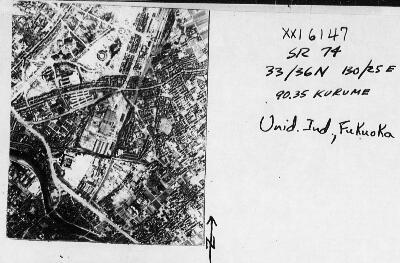 XXI 6147
SR 74
33/36N 130/25E
90.35 KURUME
Unid. Ind., Fukuoka
N